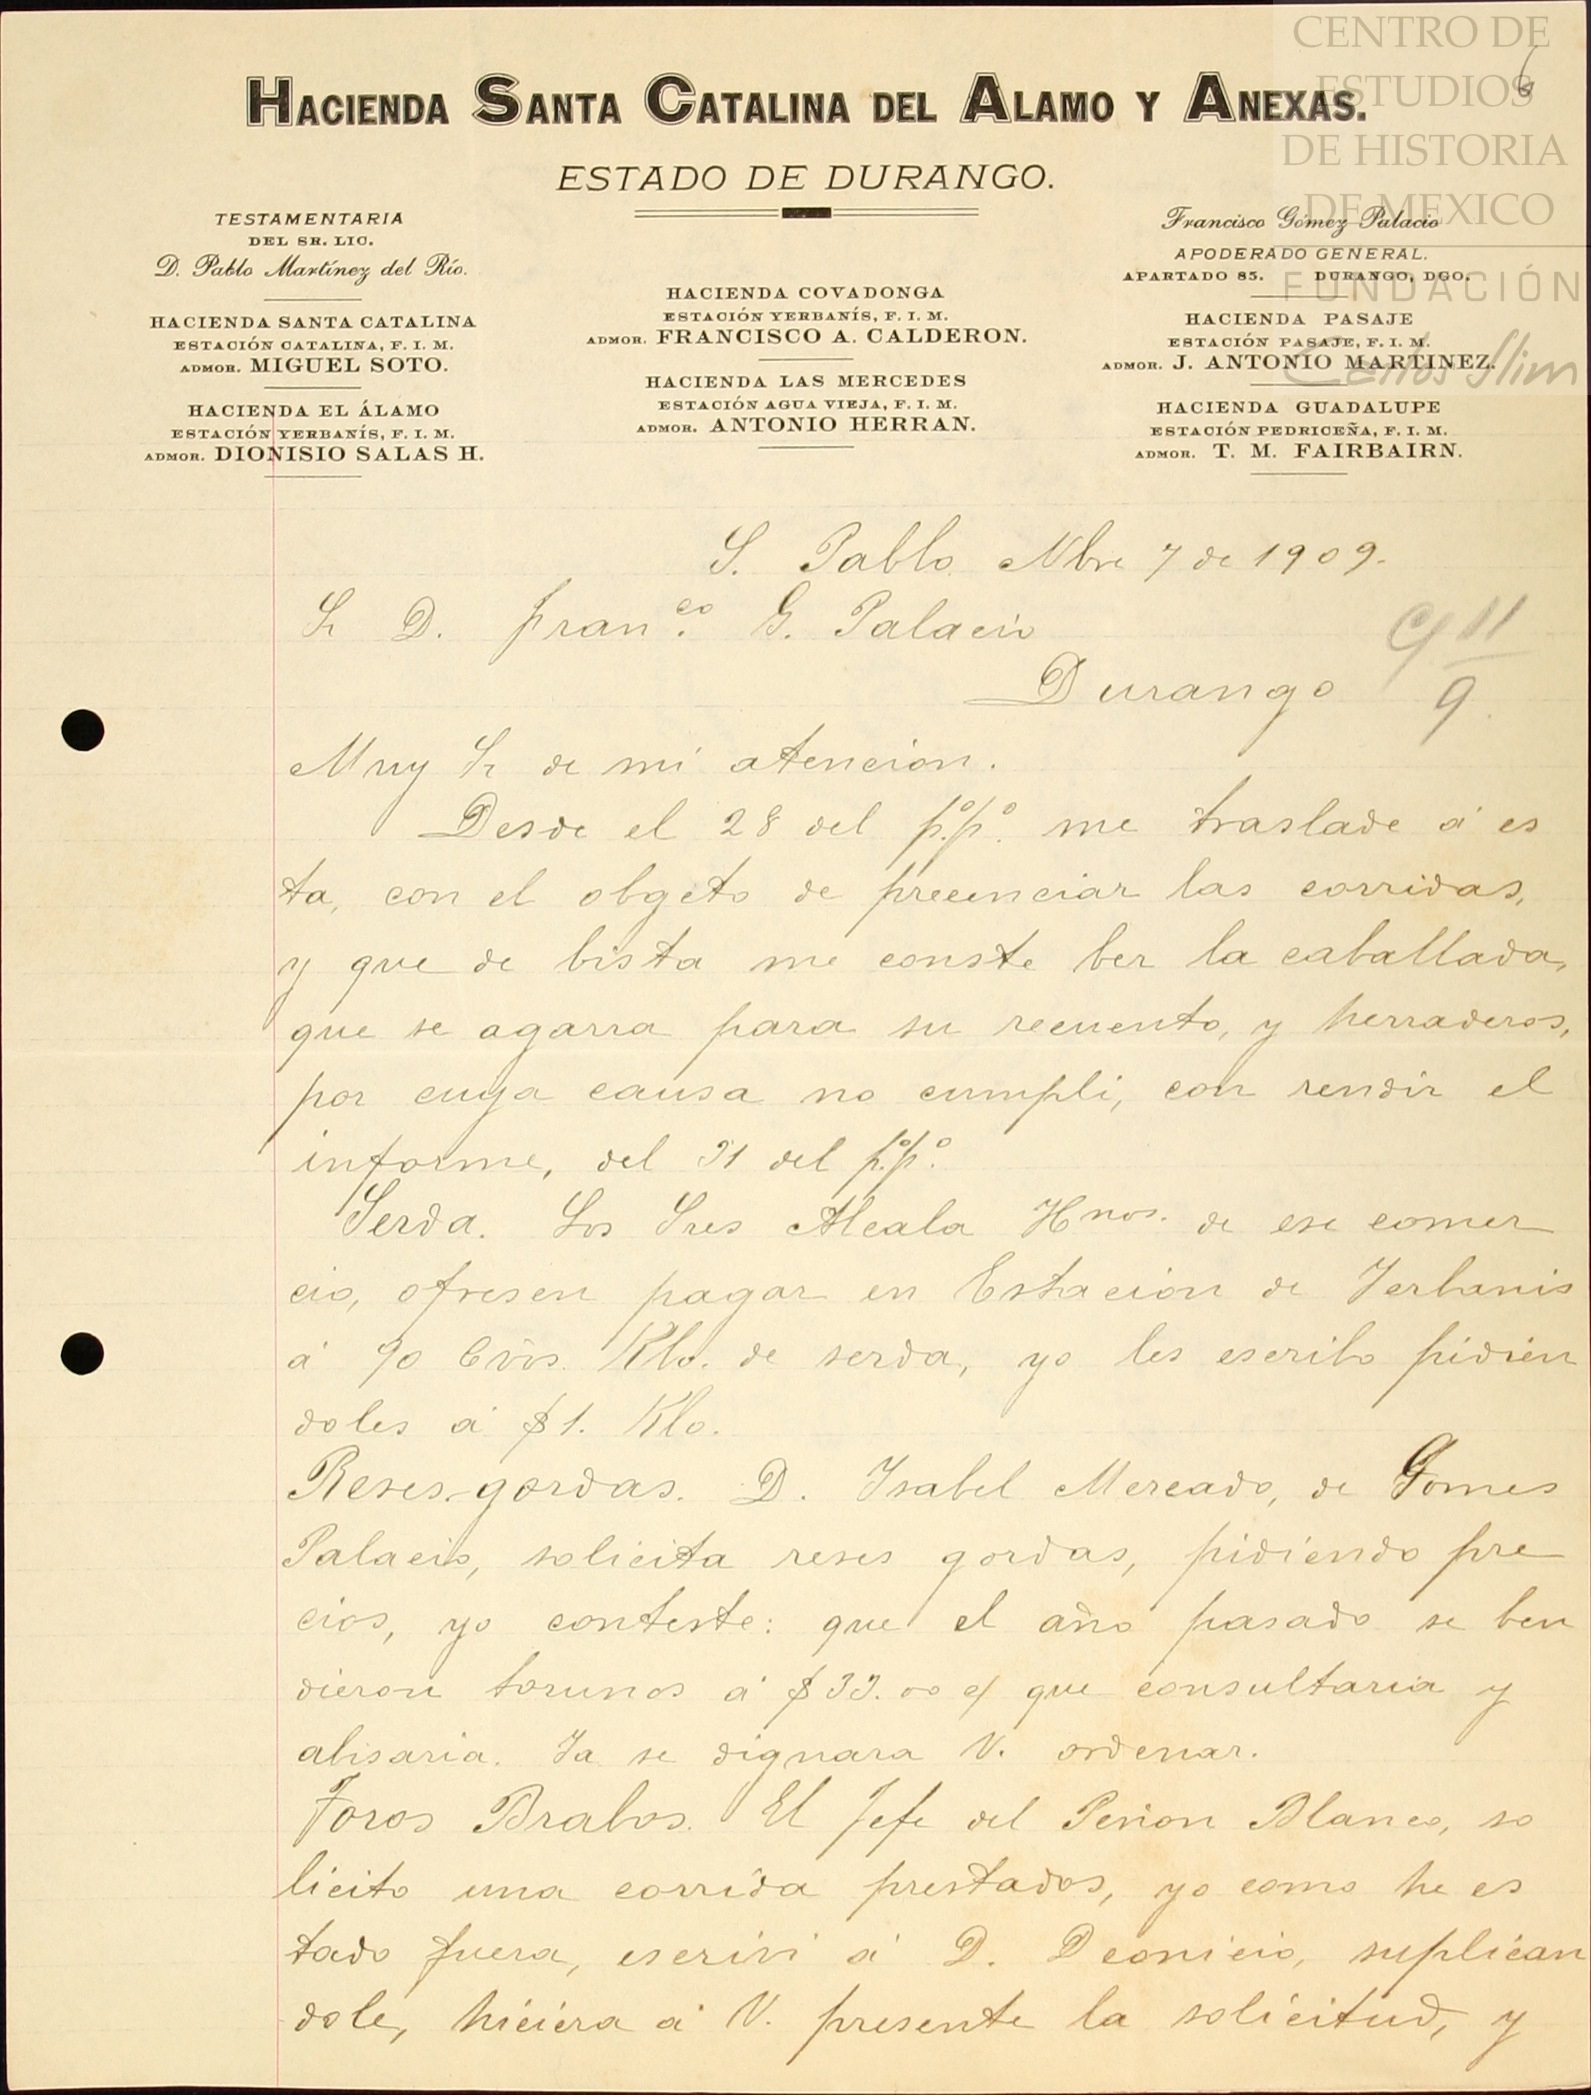 CENTRO DE
ESTUDIOS
DE HISTORIA
DE MEXICO
FUNDACIÓN
Carlos Slim
6
HACIENDA SANTA CATALINA DEL ALAMO Y ANEXAS.
ESTADO DE DURANGO.
TESTAMENTARIA
DEL SR. LIC.
D. Pablo Martínez del Río.
HACIENDA SANTA CATALINA
ESTACIÓN CATALINA, F. I. M.
ADMOR. MIGUEL SOTO.
HACIENDA EL ÁLAMO
ESTACIÓN YERBANÍS, F. I. M.
ADMOR. DIONISIO SALAS H.
HACIENDA COVADONGA
ESTACIÓN YERBANÍS, F. I. M.
ADMOR. FRANCISCO A. CALDERON.
HACIENDA LAS MERCEDES
ESTACIÓN AGUA VIEJA, F. I. M.
ADMOR. ANTONIO HERRAN.
Francisco Gómez Palacio
APODERADO GENERAL.
APARTADO 85. DURANGO, DGO.
HACIENDA PASAJE
ESTACIÓN PASAJE, F. I. M.
ADMOR. J. ANTONIO MARTINEZ.
HACIENDA GUADALUPE
ESTACIÓN PEDRICEÑA, F. I. M.
ADMOR. T. M. FAIRBAIRN.
S. Pablo Nbre 7 de 1909.
Sr D. Fran.co G. Palacio
Durango
11
9
Muy Sr de mi atencion.
Desde el 28 del p.o p.o me traslade á es
ta, con el obgeto de precenciar las corridas,
y que de bista me conste ber la caballada,
que se agarra para su recuento, y herraderos,
por cuya causa no cumpli, con rendir el
informe, del 31 del p.o p.o
Serda. Los Sres Alcala Hnos. de ese comer
cio, ofresen pagar en Estacion de Yerbanis
á 90 Cvos. Klo. de serda, yo les escribo pidien
doles á $1. Klo.
Reses gordas. D. Isabel Mercado, de Gomes
Palacio, solicita reses gordas, pidiendo pre
cios, yo conteste: que el año pasado se ben
dieron torunos á $33.00 c/ que consultaria y
abisaria. Ya se dignara V. ordenar.
Toros Brabos. El Jefe del Peñon Blanco, so
licito una corrida prestados, yo como he es
tado fuera, escrivi á D. Deonicio, suplican
dole, hiciera á V. presente la solicitud, y